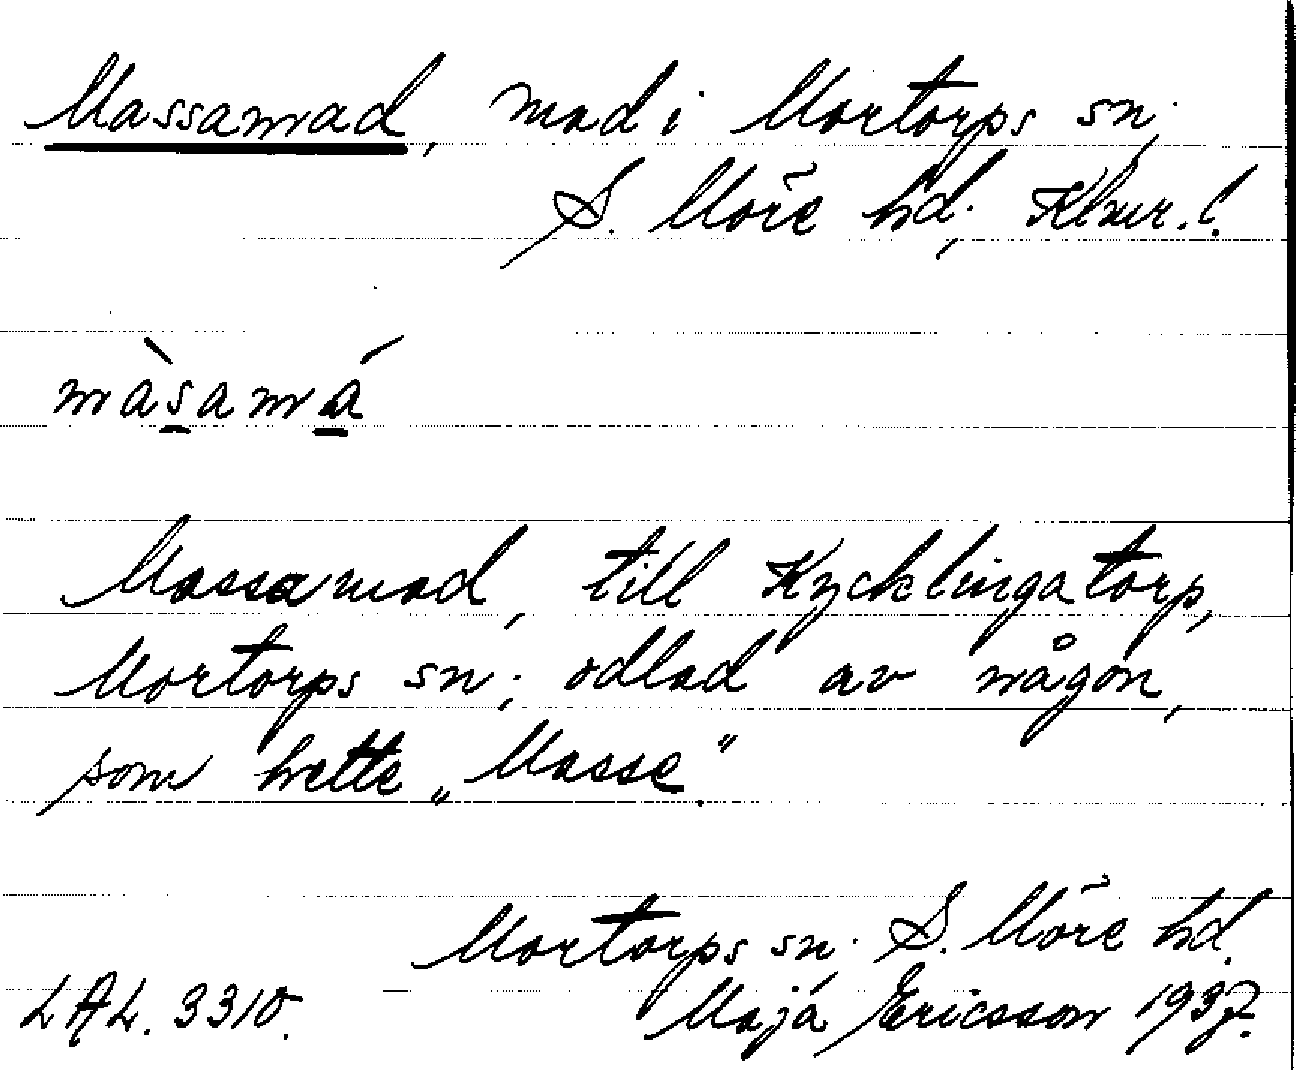 Massamad, mad i Mortorps sn,
S. Möre hd, Klmr. l.
màsamá
Massamad, till Kycklingatorp,
Mortorps sn; odlad av någon,
som hette „Masse".
Mortorps sn. S. Möre hd.
LAL. 3310. Maja Ericsson 1937.